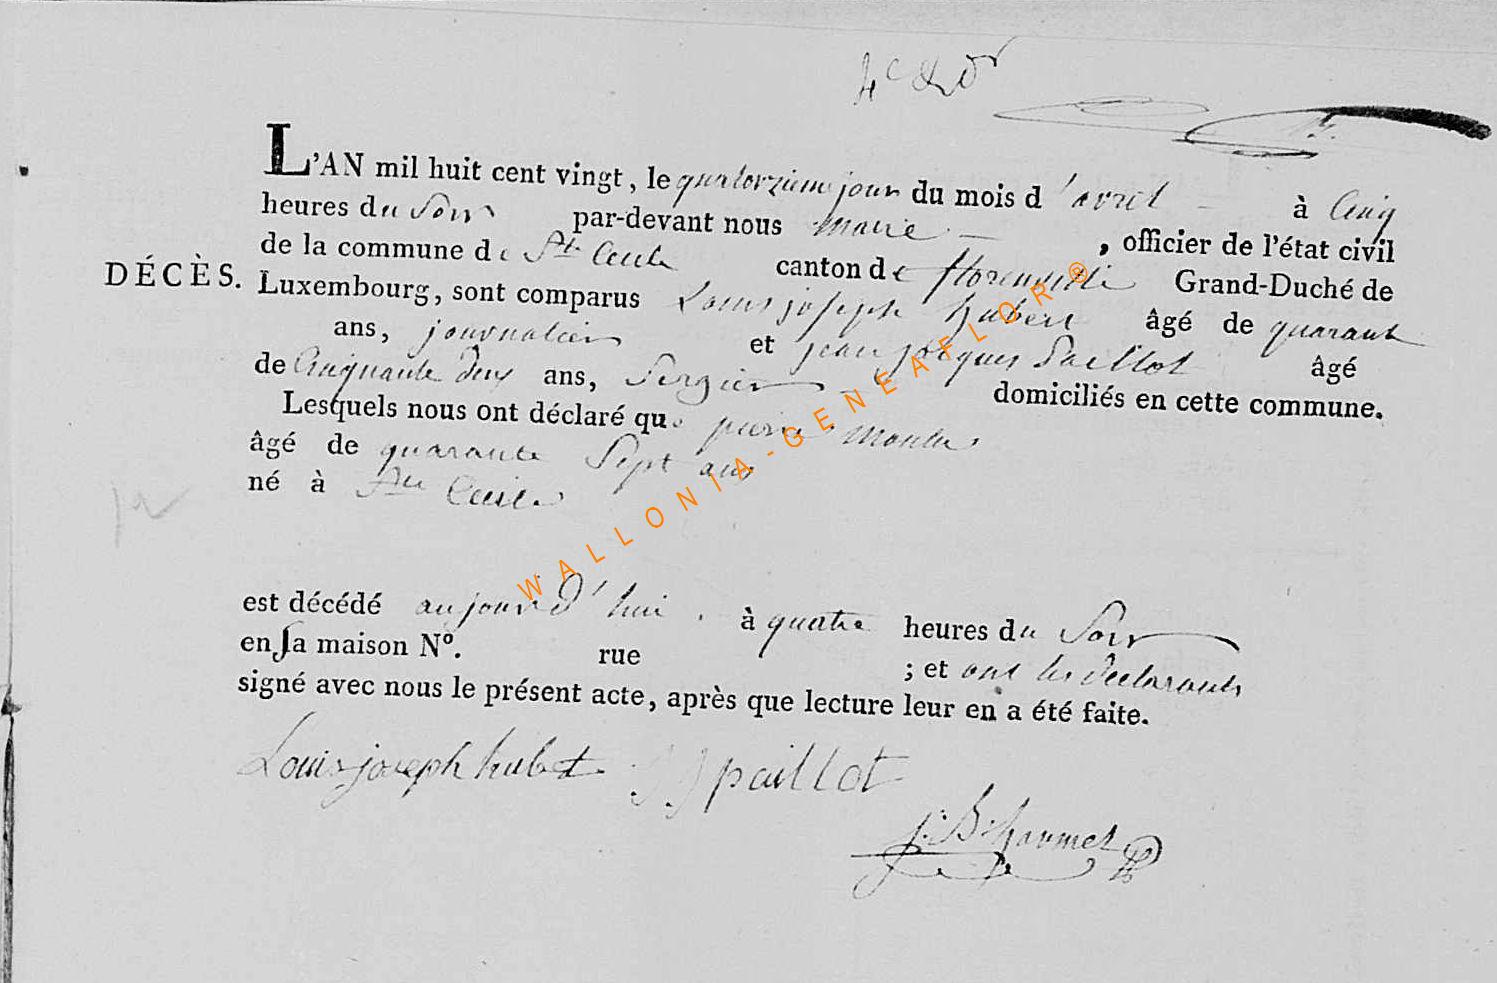 L'AN mil huit cent vingt, le quatorzieme jour du mois d'avril à Cinq
heures du Soir par-devant nous maire , officier de l'état civil
de la commune de Ste Cecile canton de florenville Grand-Duché de
DÉCÈS. Luxembourg, sont comparus Louis joseph hubert âgé de quarante
ans, journalier et jean jacques Paillot âgé
de Cinquante deux ans, Sergier domiciliés en cette commune.
Lesquels nous ont déclaré que pierre
âgé de quarante Sept ans
né à Ste Cecile
est décédé aujourd'hui à quatre heures du Soir
en sa maison N°. rue ; et ont les declarants
signé avec nous le présent acte, après que lecture leur en a été faite.
Louis joseph hubert JJ paillot
j: B: hormet
WALLONIA-GENEAFLOR®